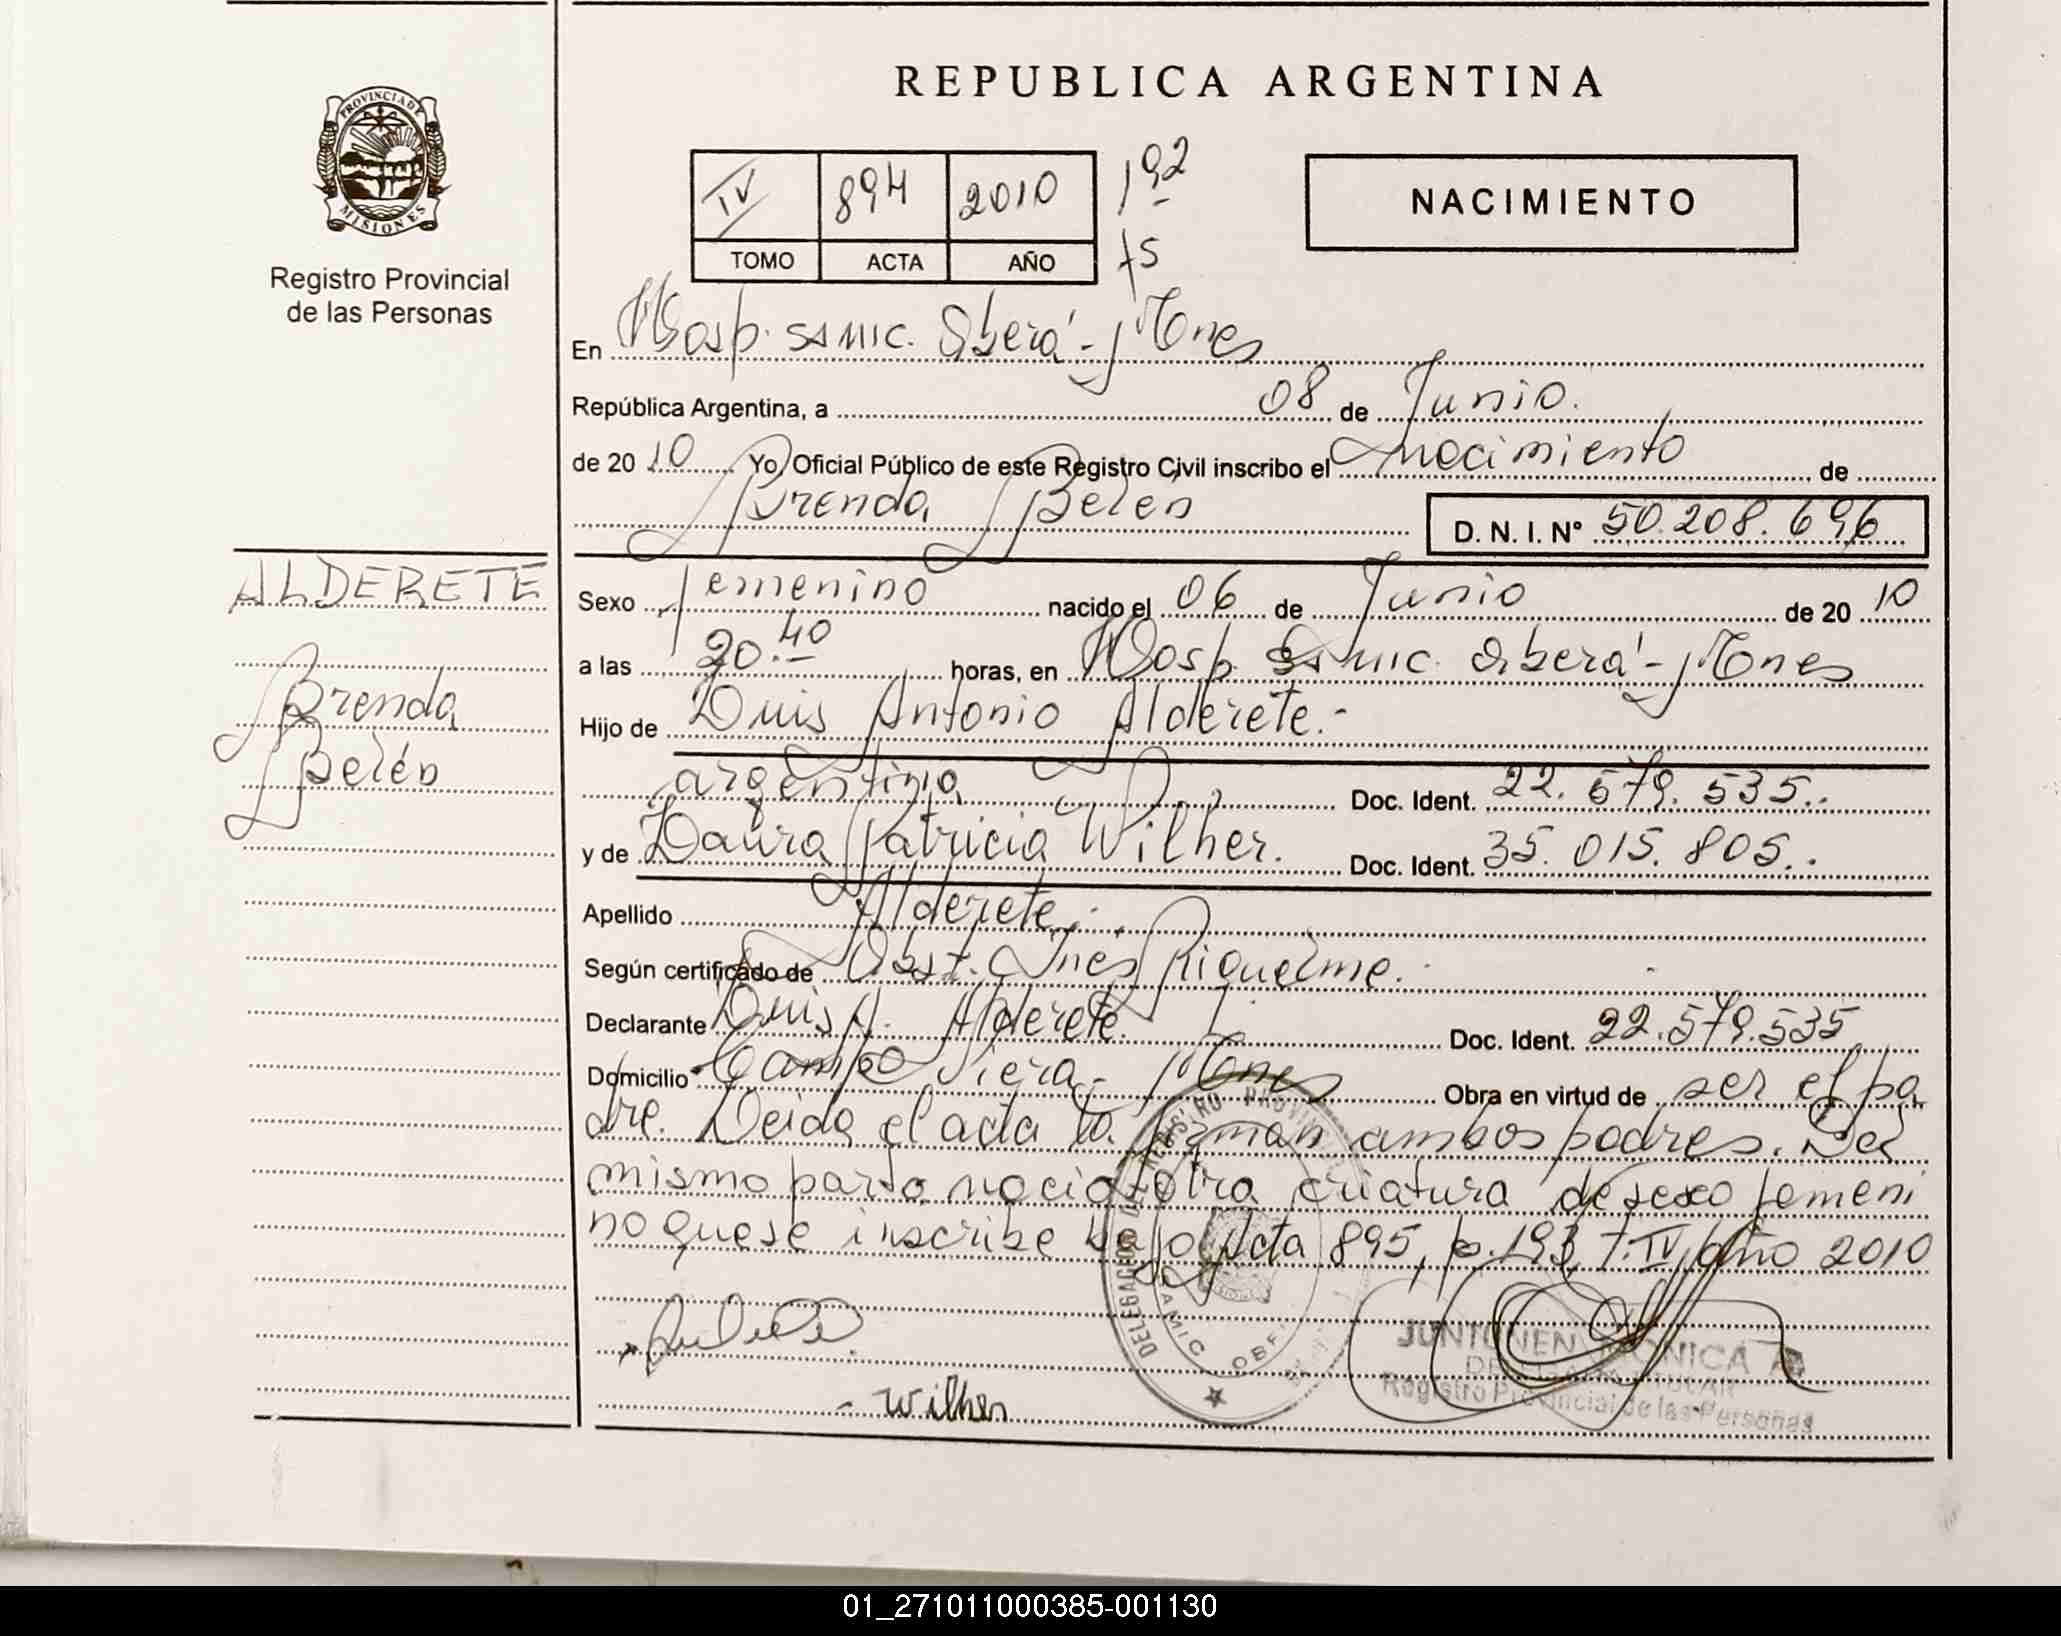 REPUBLICA ARGENTINA
PROVINCIA DE
MISIONES
Registro Provincial
de las Personas
IV 894 2010 192
TOMO ACTA AÑO fs
NACIMIENTO
En Hosp. SAMIC. Oberá - Mnes
República Argentina, a 08 de Junio.
de 20 10 Yo, Oficial Público de este Registro Civil inscribo el nacimiento de
Brenda Belén D. N. I. Nº 50.208.696
ALDERETE
Brenda
Belén
Sexo femenino nacido el 06 de Junio de 20 10
a las 20.40 horas, en Hosp. SAMIC. Oberá - Mnes
Hijo de Luis Antonio Alderete.-
argentino Doc. Ident. 22.579.535.
y de Laura Patricia Wilher. Doc. Ident. 35.015.805.
Apellido Alderete.
Según certificado de Obst. Inés Riquelme.
Declarante Luis A. Alderete. Doc. Ident. 22.579.535
Domicilio Campo Viera - Mnes Obra en virtud de ser el pa
dre. Leida el acta la firman ambos padres. Del
mismo parto nació otra criatura de sexo femeni
no que se inscribe bajo Acta 895, p. 193, T. IV, año 2010
Wilher
JUNTUNEN MONICA
Registro Provincial de las Personas
01_271011000385-001130